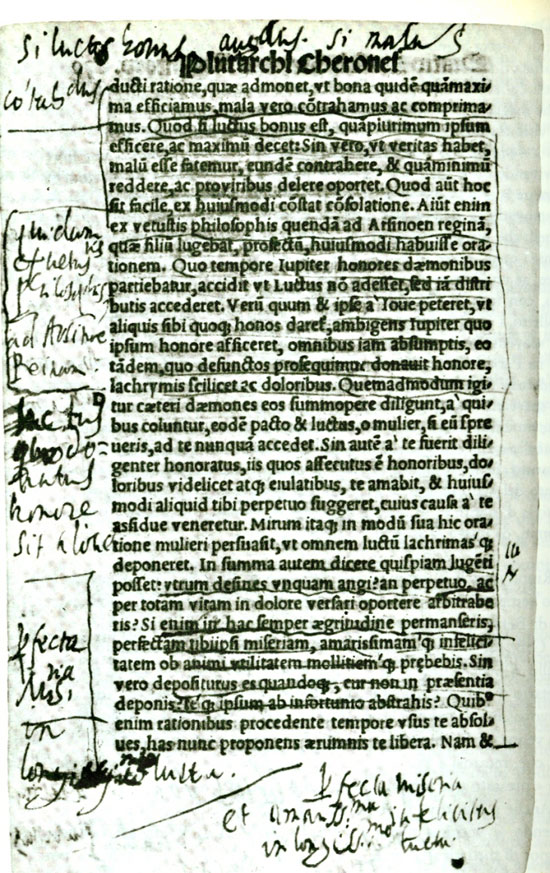 si luctus bonus augendus. si malus
Plutarchi Cheronei
ducti ratione, quæ admonet, vt bona quidē quāmaxi
ma efficiamus, mala vero cōtrahamus ac comprima-
mus. Quod si luctus bonus est, quāplurimum ipsum
efficere, ac maximū decet: Sin vero, vt veritas habet,
malū esse fatemur, eundē contrahere, & quāminimū
reddere, ac proviribus delere oportet. Quod aūt hoc
sit facile, ex huiusmodi cōstat cōsolatione. Aiūt enim
ex vetustis philosophis quendā ad Arsinoen reginā,
quæ filiū lugebat, profectū, huiusmodi habuisse ora-
tionem. Quo tempore Iupiter honores dæmonibus
partiebatur, accidit vt Luctus nō adesset, sed iā distri
butis accederet. Verū quum & ipse a' Ioue peteret, vt
aliquis sibi quoq; honos daret', ambigens Iupiter quo
ipsum honore afficeret, omnibus iam absumptis, eo
tādem, quo defunctos prosequimur donauit honore,
lachrymis scilicet ac doloribus. Quemadmodum igi-
tur cæteri dæmones eos summopere diligunt, a' qui-
bus coluntur, eodē pacto & luctus, o mulier, si eū spre
ueris, ad te nunquā accedet. Sin autē a' te fuerit dili-
genter honoratus, iis quos assecutus ē honoribus, do-
loribus videlicet atq; eiulatibus, te amabit, & huius-
modi aliquid tibi perpetuo suggeret, cuius causa a' te
assidue veneretur. Mirum itaq; in modū sua hic ora-
tione mulieri persuasit, vt omnem luctū lachrimas'q;
deponeret. In summa autem dicere quispiam lugēti
posset: vtrum desines vnquam angi? an perpetuo, ac
per totam vitam in dolore versari oportere arbitrabe
ris? Si enim in hac semper ægritudine permanseris,
perfectam tibiipsi miseriam, amarissimam'q; infelici-
tatem ob animi vtilitatem mollitiem'q; prębebis. Sin
vero depositurus es quandoq;, cur non in præsentia
deponis? Te'q; ipsum ab infortunio abstrahis? Quib°
enim rationibus procedente tempore vsus te absol-
ues, has nunc proponens ærumnis te libera. Nam &
quidam
ex vetus
philosophis
ad Arsinoe
Reinam
luctus
honore
perfecta
in
luctu.
perfecta miseria
et infelicitas
in luctu.